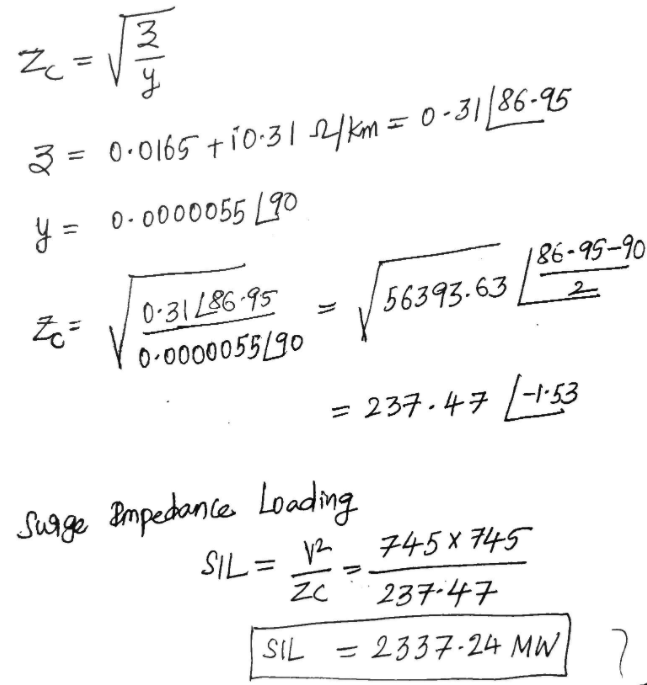 Zc = √(3/y)
3 = 0.0165 + i0.31 Ω/km = 0.31∠86.95
y = 0.0000055∠90
Zc = √(0.31∠86.95 / 0.0000055∠90) = √56393.63 ∠(86.95-90 / 2)
= 237.47 ∠-1.53
Surge Impedance Loading
SIL = V²/ZC = 745 x 745 / 237.47
SIL = 2337.24 MW ?